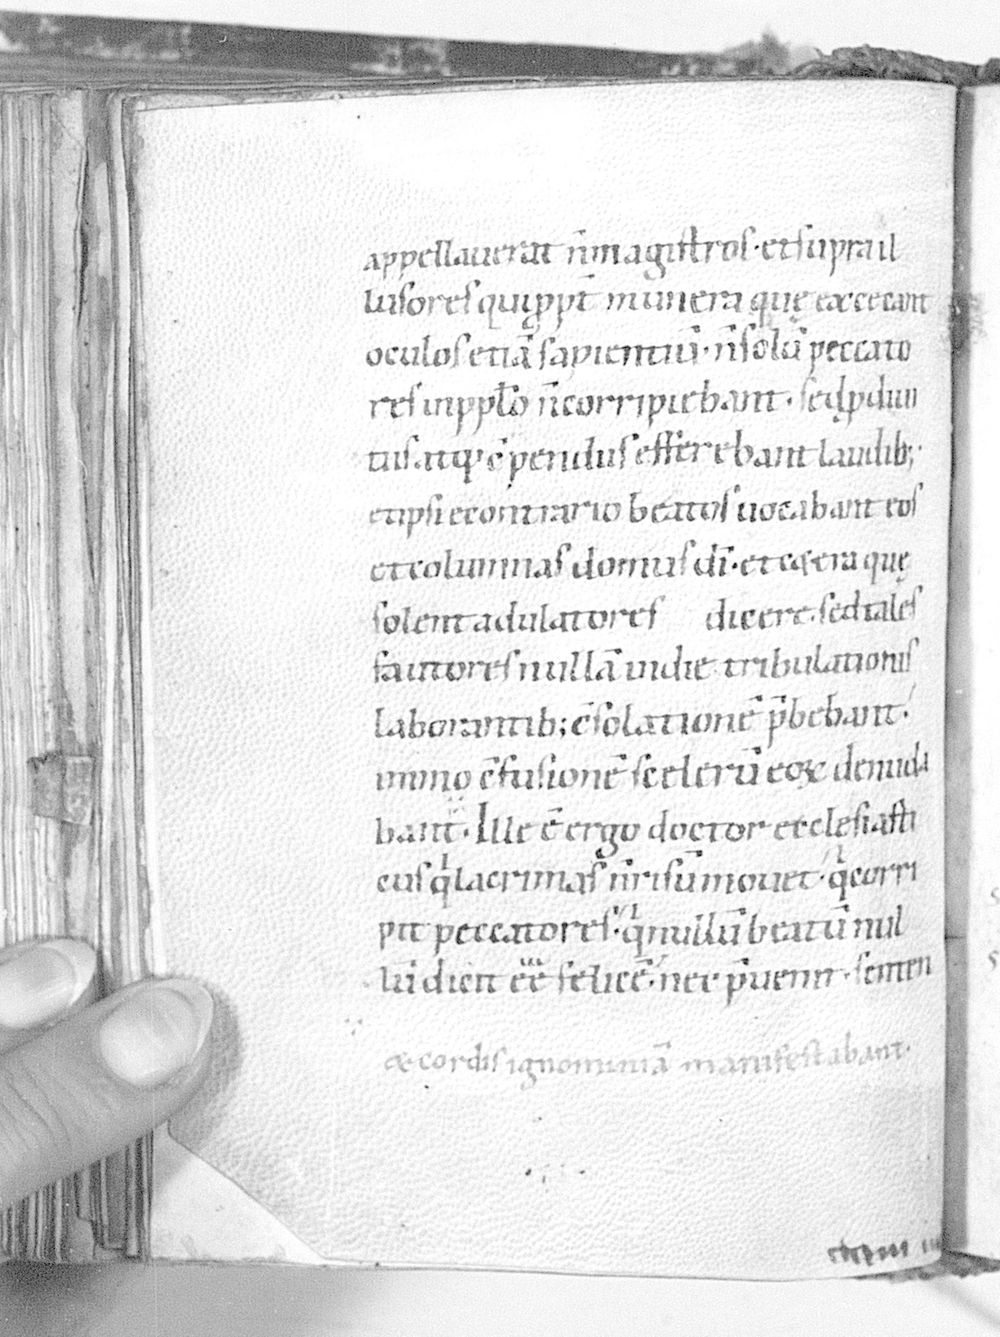 appellauerat n̄ magistros · et supra il
lusores qui ꝓpt̄ munera quę excecant
oculos etiā sapientiū · n̄ solū peccato
res in ppło n̄ corripiebant · sed ꝓ diui
tiis atq; ē pendiis efferebant laudib;
et ipsi econtrario beatos uocabant eos
et columnas domus dī · et cętera quę
solent adulatores dicere · sed tales
fautores nullā in die tribulationis
laborantib; c̄solationē p̄bebant ·
immo c̄fusionē scelerū eoꝝ denuda
bant · Ille ē ergo doctor ecclesiasti
cus q̇ lacrimas n̄ risū mouet · q̇ corri
pit peccatores · q̇ nullū beatū nul
lū dicit eē̄ felicē · nec p̄uenit · senten
& cordis ignominiā manifestabant ·